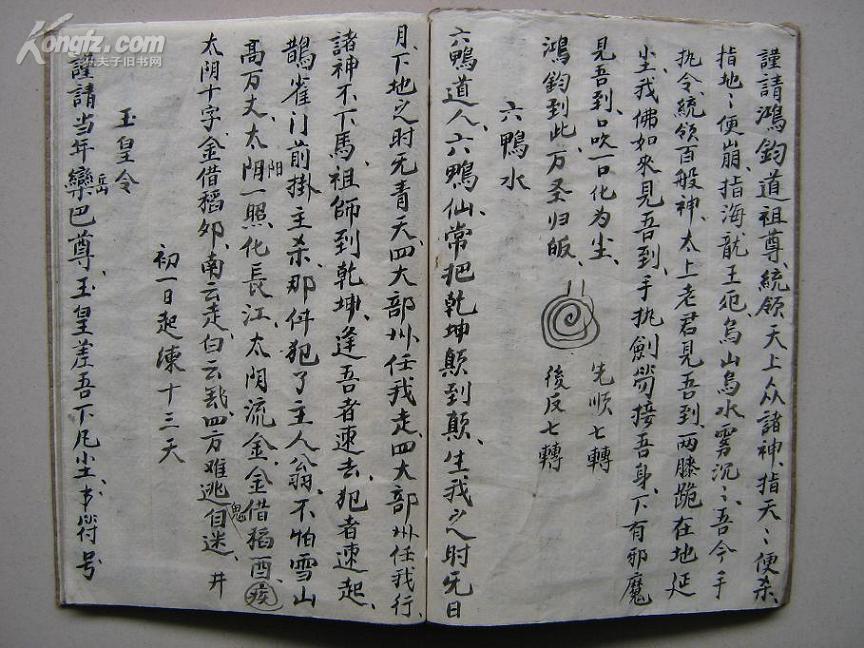 謹請鴻鈞道祖尊、統領天上众諸神、指天〻便杀、
指地〻便崩、指海龍王厄、烏山烏水雾沉〻、吾今手
执令、統领百般神、太上老君見吾到、两膝跪在地延
尘、我佛如來見吾到、手执劍劳接吾身、下有邪魔
見吾到、口吹一口化为尘、
先顺七轉
鴻鈞到此、万圣归皈、
後反七轉
六鴨水
六鴨道人、六鴨仙、常把乾坤颠到颠、生我之时旡日
月、下地之时旡青天、四大部州任我走、四大部州任我行、
諸神不下馬、祖師到乾坤、逢吾者速去、犯者速起、
鵲雀门前掛主杀、那件犯了主人翁、不怕雪山
高万丈、太阴一照化長江、太阴流金、金借稻酉、
阳
痪
太阴十字、金借稻夘、南云走、白云我、四万难逃自迷、井
鬼
初一日起练十三天
玉皇令
謹請当年欒巴尊、玉皇差吾下凡尘、书符号
岳
Kongfz.com
孔夫子旧书网